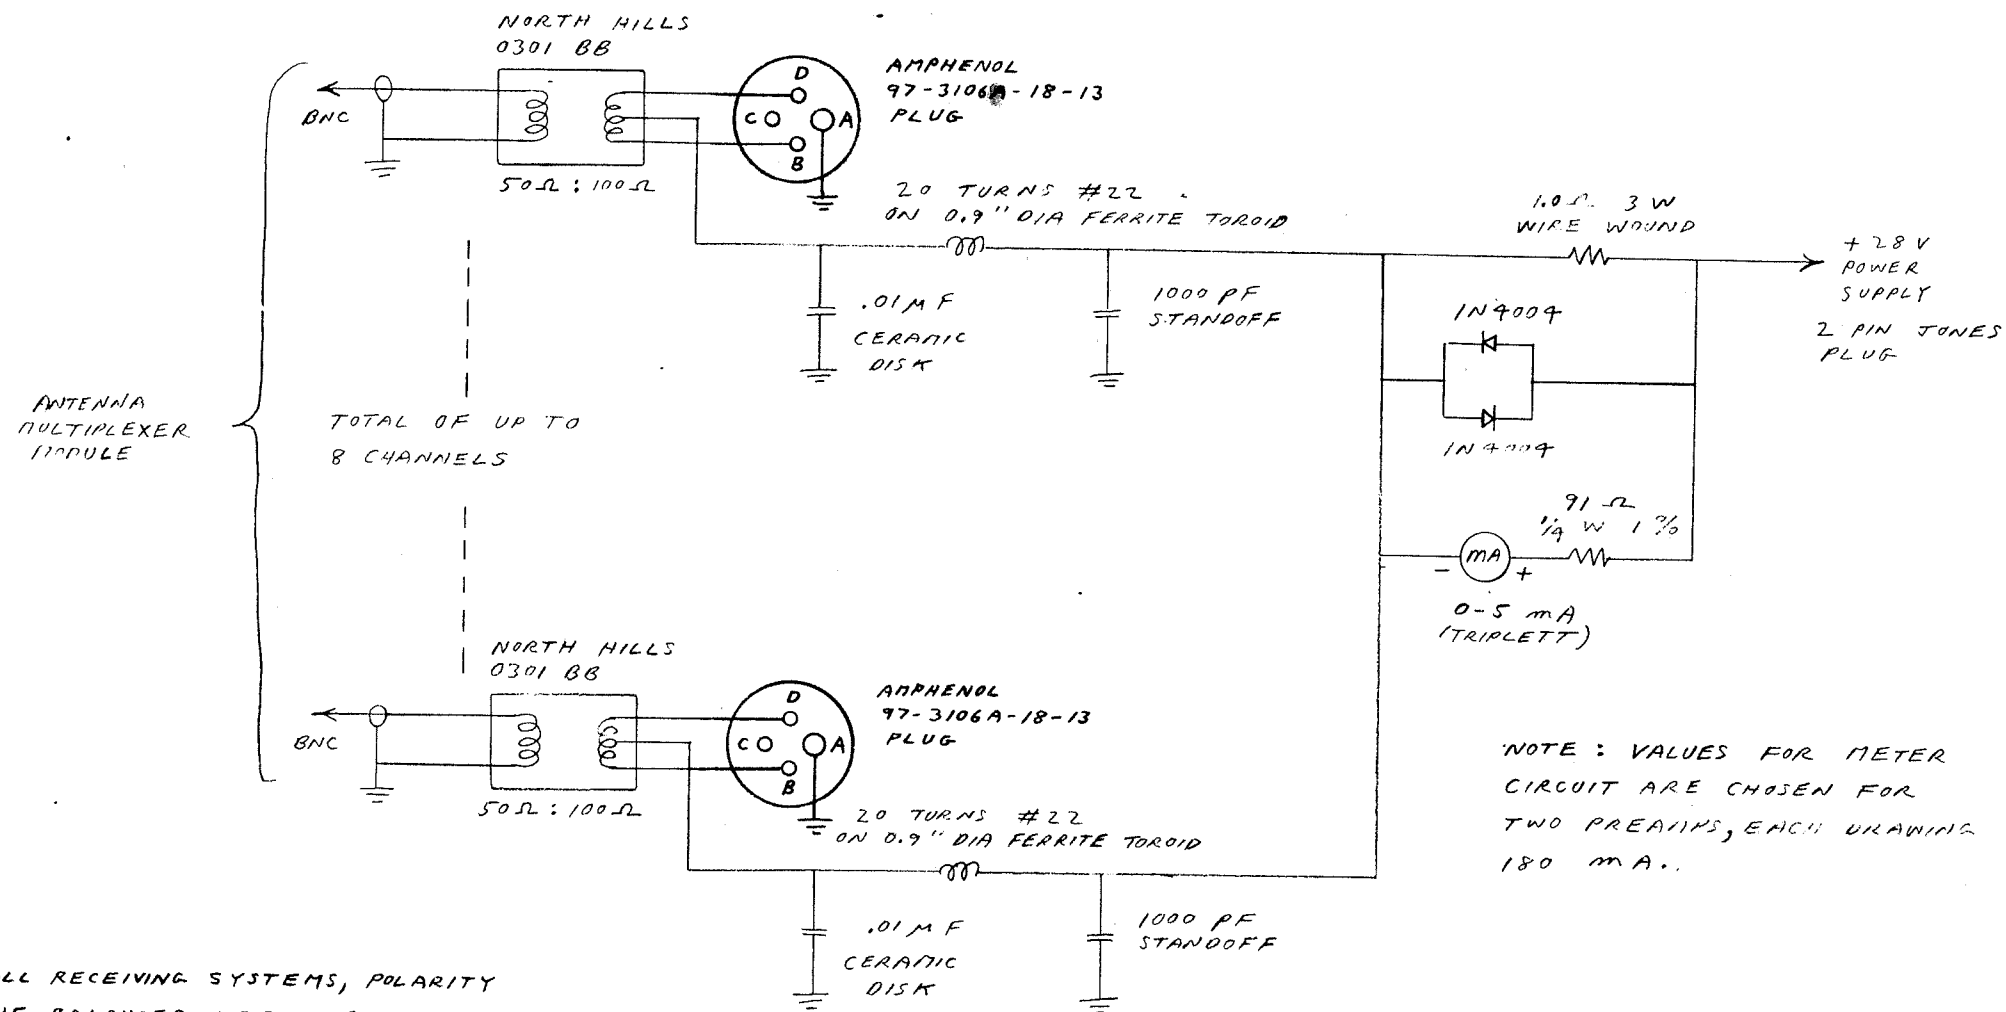 NORTH HILLS
0301 BB
BNC
50Ω : 100Ω
D
C
A
B
AMPHENOL
97-3106A-18-13
PLUG
20 TURNS #22
ON 0.9" DIA FERRITE TOROID
.01 μF
CERAMIC
DISK
1000 PF
STANDOFF
1.0 Ω 3 W
WIRE WOUND
+ 28 V
POWER
SUPPLY
2 PIN JONES
PLUG
1N4004
1N4004
91 Ω
1/4 W 1 %
mA
-
+
0-5 mA
(TRIPLETT)
ANTENNA
MULTIPLEXER
MODULE
TOTAL OF UP TO
8 CHANNELS
NORTH HILLS
0301 BB
BNC
50Ω : 100Ω
D
C
A
B
AMPHENOL
97-3106A-18-13
PLUG
20 TURNS #22
ON 0.9" DIA FERRITE TOROID
.01 μF
CERAMIC
DISK
1000 PF
STANDOFF
NOTE : VALUES FOR METER
CIRCUIT ARE CHOSEN FOR
TWO PREAMPS, EACH DRAWING
180 mA.
LL RECEIVING SYSTEMS, POLARITY